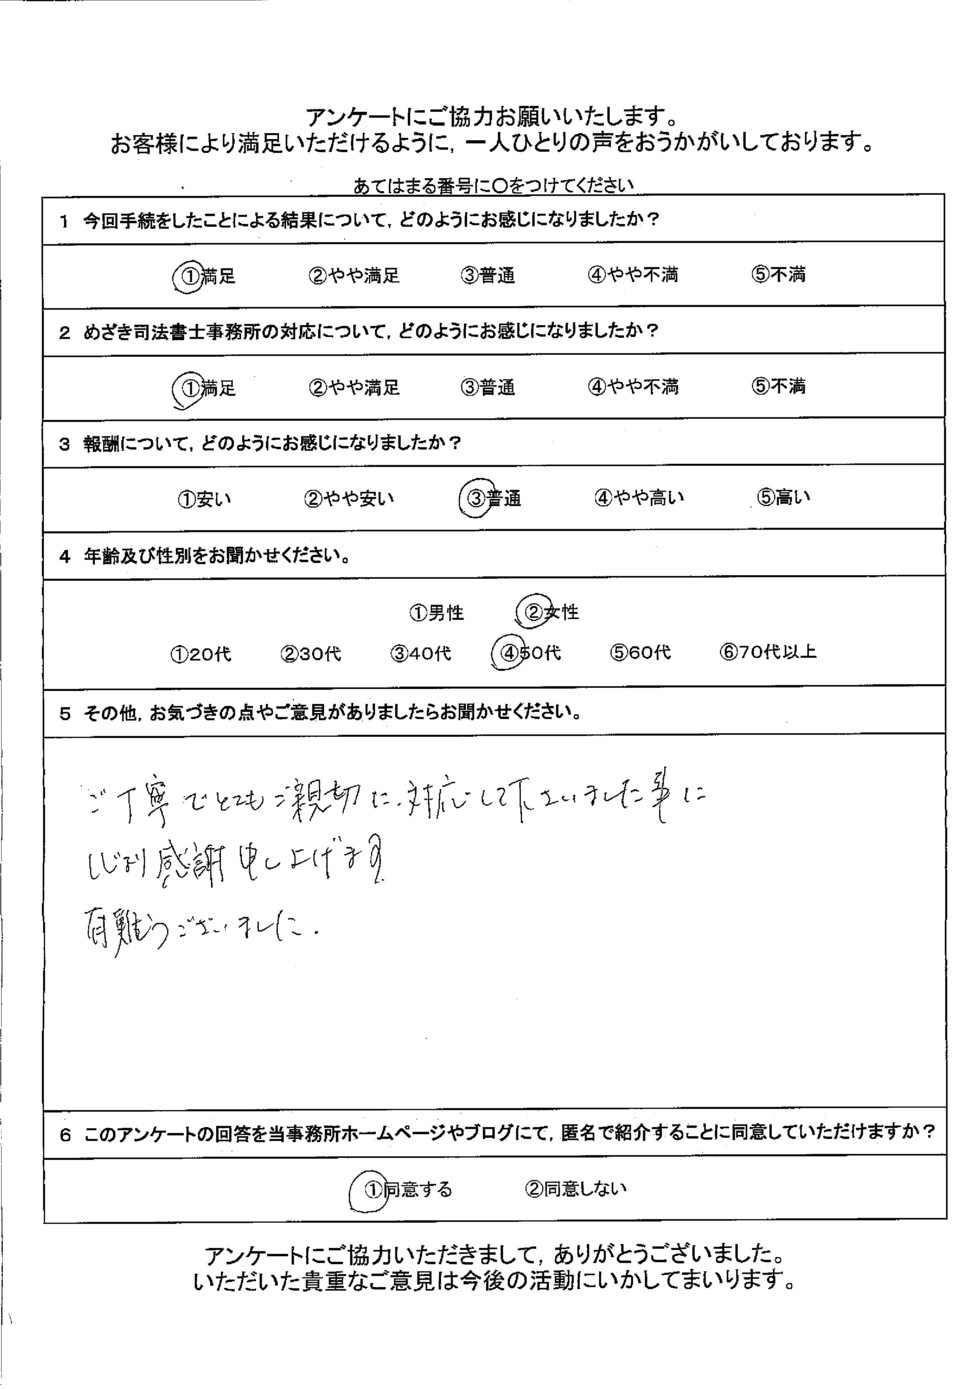 アンケートにご協力お願いいたします。
お客様により満足いただけるように，一人ひとりの声をおうかがいしております。
あてはまる番号に○をつけてください
1 今回手続をしたことによる結果について，どのようにお感じになりましたか？
①満足 ②やや満足 ③普通 ④やや不満 ⑤不満
2 めざき司法書士事務所の対応について，どのようにお感じになりましたか？
①満足 ②やや満足 ③普通 ④やや不満 ⑤不満
3 報酬について，どのようにお感じになりましたか？
①安い ②やや安い ③普通 ④やや高い ⑤高い
4 年齢及び性別をお聞かせください。
①男性 ②女性
①20代 ②30代 ③40代 ④50代 ⑤60代 ⑥70代以上
5 その他，お気づきの点やご意見がありましたらお聞かせください。
ご丁寧でとてもご親切に、対応して下さいました事に
心より感謝申し上げます
有難うございました.
6 このアンケートの回答を当事務所ホームページやブログにて，匿名で紹介することに同意していただけますか？
①同意する ②同意しない
アンケートにご協力いただきまして，ありがとうございました。
いただいた貴重なご意見は今後の活動にいかしてまいります。